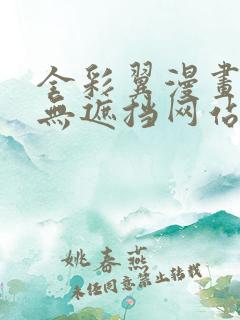 全彩翼漫畫
無遮挡网佔
姚春燕
未经同意禁止转载